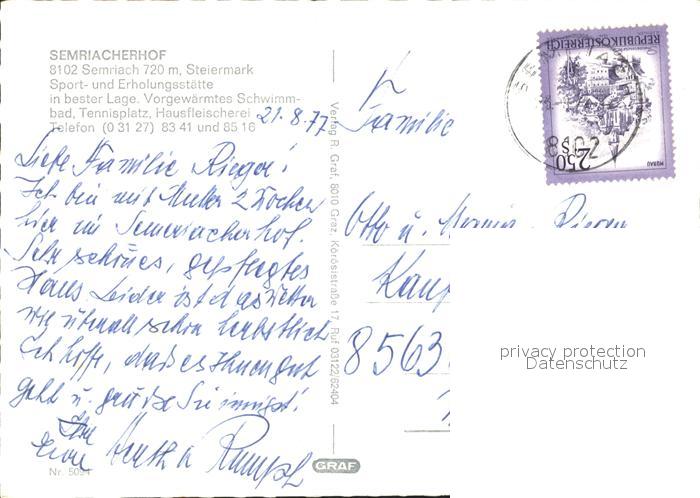 SEMRIACHERHOF
8102 Semriach 720 m, Steiermark
Sport- und Erholungsstätte
in bester Lage. Vorgewärmtes Schwimm-
bad, Tennisplatz, Hausfleischerei
Telefon (0 31 27) 83 41 und 85 16
21.8.77
Liebe Familie Rieger!
Ich bin mit Mutter 2 Wochen
hier im Semriacherhof.
Sehr schönes, gepflegtes
Haus. Leider ist das Wetter
wie überall schon herbstlich
Ich hoffe, daß es Ihnen gut
geht u. grüße Sie innigst!
Ihre
Rumpf
Nr. 5054
GRAF
Verlag R. Graf, 8010 Graz, Körösistraße 17, Ruf 03122/62404
REPUBLIK ÖSTERREICH
MURAU
S 2.50
8102
Familie
Otto u.
8563
privacy protection
Datenschutz